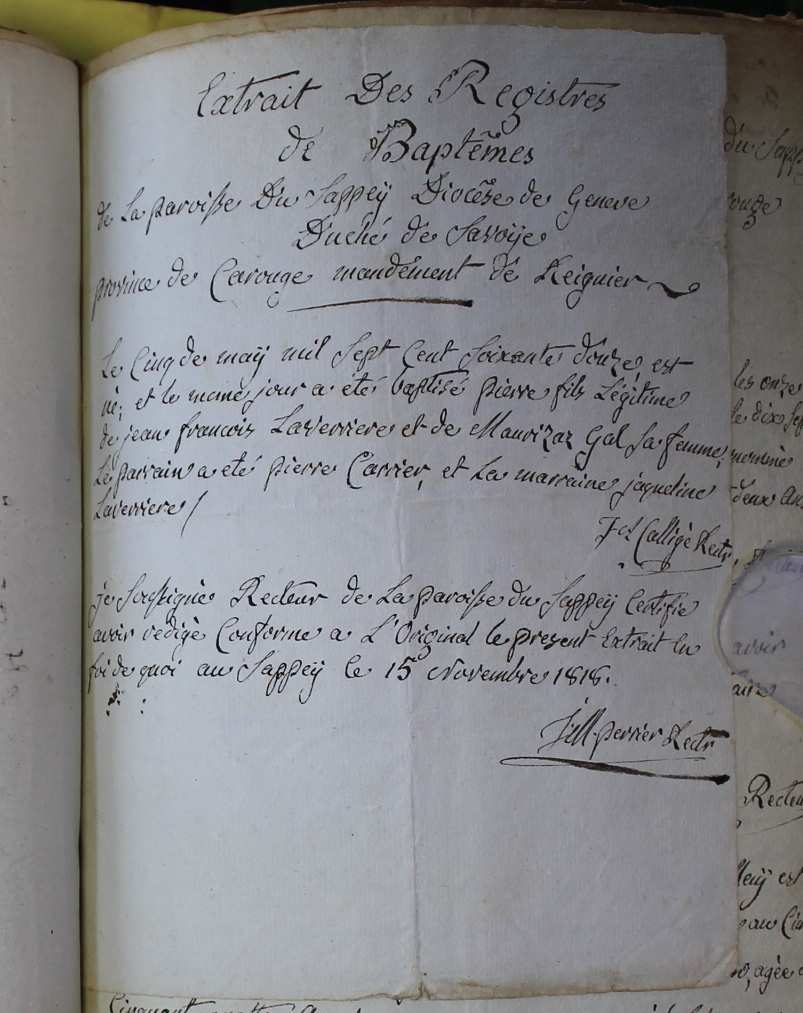 Extrait Des Registres
de Baptêmes
de La paroisse Du Sappeÿ Diocèse de Geneve
Duché de Savoÿe
province de Carouge mandément de Reignier
Le Cinq de maÿ mil Sept Cent Soixante douze, est
né, et le même jour a été baptisé pierre fils Légitime
de jean francois Laverriere et de Maurizaz Gal Sa femme,
Le parrain a été pierre Carrier, et La marraine jaqueline
Laverriere /
Calligé Rectr
je Soussigné Recteur de La paroisse du Sappeÿ Certifie
avoir redigé Conforme a L'Original le present Extrait En
foi de quoi au Sappeÿ le 15 Novembre 1818.
perrier Rectr
du Sapp
rouge
les onze
le dix Sep
nommé
deux An
avoir
Recteu
Maÿ est
au Cin
agée